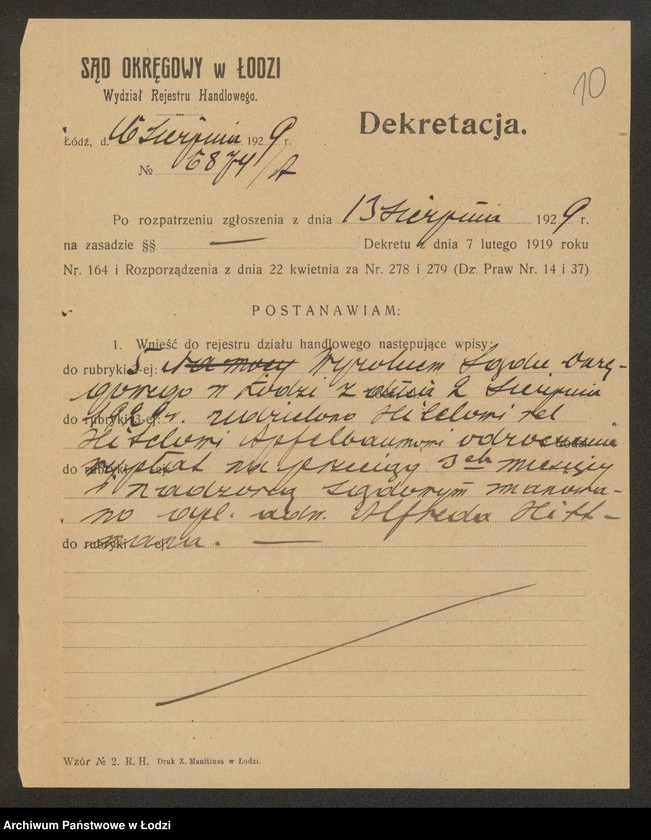 SĄD OKRĘGOWY w ŁODZI
Wydział Rejestru Handlowego.
10
Łódź, d. 16 Sierpnia 1929 r.
№ 6874/A
Dekretacja.
Po rozpatrzeniu zgłoszenia z dnia 13 Sierpnia 1929 r.
na zasadzie §§ — Dekretu z dnia 7 lutego 1919 roku
Nr. 164 i Rozporządzenia z dnia 22 kwietnia za Nr. 278 i 279 (Dz. Praw Nr. 14 i 37)
POSTANAWIAM:
1. Wnieść do rejestru działu handlowego następujące wpisy:
do rubryki 5 -ej: Na mocy Wyrokiem Sądu Okrę-
gowego w Łodzi z dnia 2 Sierpnia
do rubryki 3-ej: 1929 r. udzielono Hilelowi vel
Hitelowi Apfelbaumowi odroczenie
do rubryki wypłat na przeciąg 3ch miesięcy
i nadzorcą sądowym mianowa-
no apl. adw. Alfreda Hitt-
do rubryki -ej: mana. —
Wzór № 2. R. H. Druk Z. Manitiusa w Łodzi.
Archiwum Państwowe w Łodzi